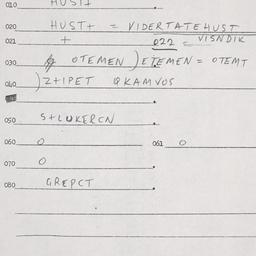 010 HUST+
020 HUST+ = VIDERTATEHUST
021 + 022 = VISNDIK
030 OTEMEN ) ETEMEN = OTEMT
040 ) Z+IPET QKAMVOS
050 S+LUKERCN
060 O 061 O
070 O
080 GREPCT